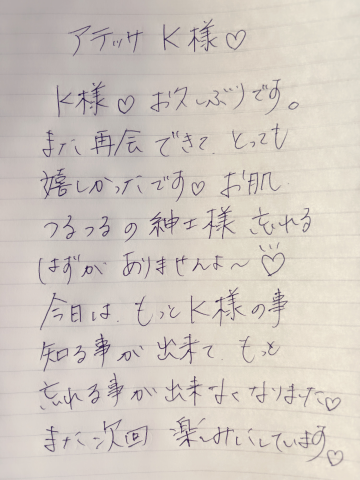 アテッサ K様♡
K様♡ お久しぶりです。
また 再会 できて、とっても
嬉しかったです♡ お肌
つるつるの 紳士様 忘れる
はずが ありませんよ〜♡
今日は、もっとK様の事
知る事が 出来て、もっと
忘れる事が 出来なくなりました♡
また 次回 楽しみにしています♡